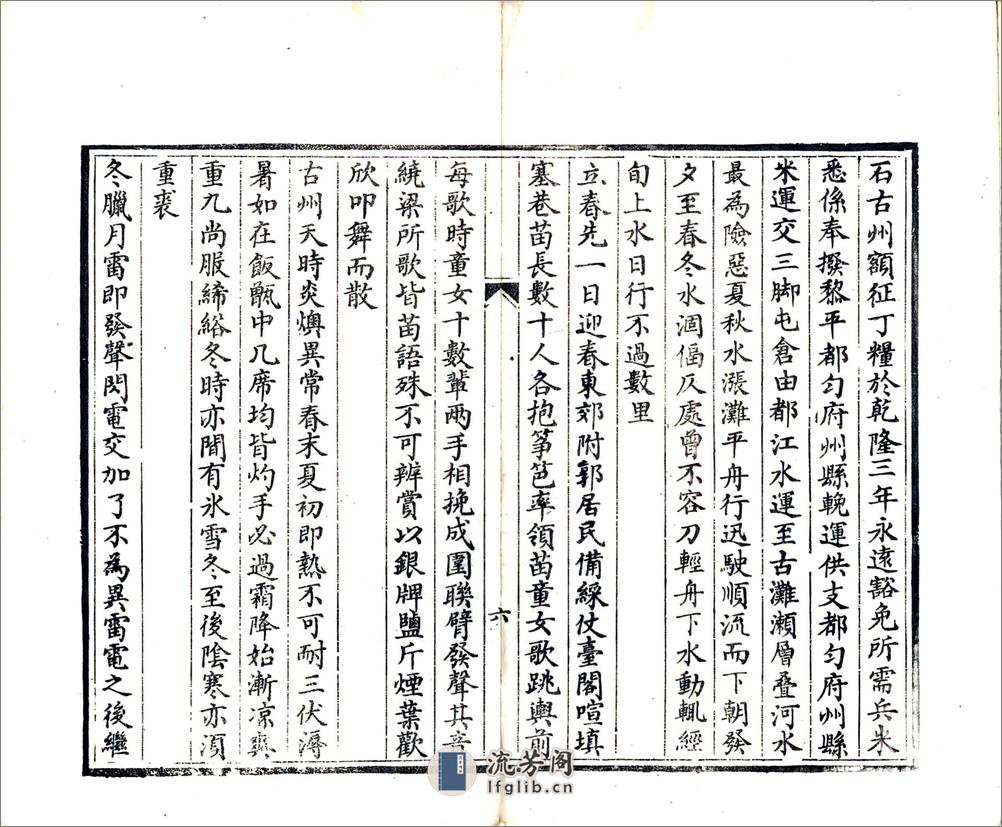 石古州額征丁糧於乾隆三年永遠豁免所需兵米
悉係奉撥黎平都勻府州縣輓運供支都勻府州縣
米運交三脚屯倉由都江水運至古灘瀬層叠河水
最為險惡夏秋水漲灘平舟行迅駛順流而下朝發
夕至春冬水涸偪仄處曾不容刀輕舟下水動輒經
旬上水日行不過數里
立春先一日迎春東郊附郭居民備綵仗臺閣喧填
塞巷苗長數十人各抱箏笆率領苗童女歌跳輿前
每歌時童女十數輩兩手相挽成圍聯臂發聲其音
繞梁所歌皆苗語殊不可辨賞以銀牌鹽斤煙葉歡
欣叩舞而散
古州天時炎燠異常春末夏初即熱不可耐三伏溽
暑如在飯甑中几席均皆灼手必過霜降始漸凉爽
重九尚服絺綌冬時亦閒有氷雪冬至後陰寒亦湏
重裘
冬臘月雷即發聲閃電交加了不為異雷電之後繼
六
流芳阁
lfglib.cn